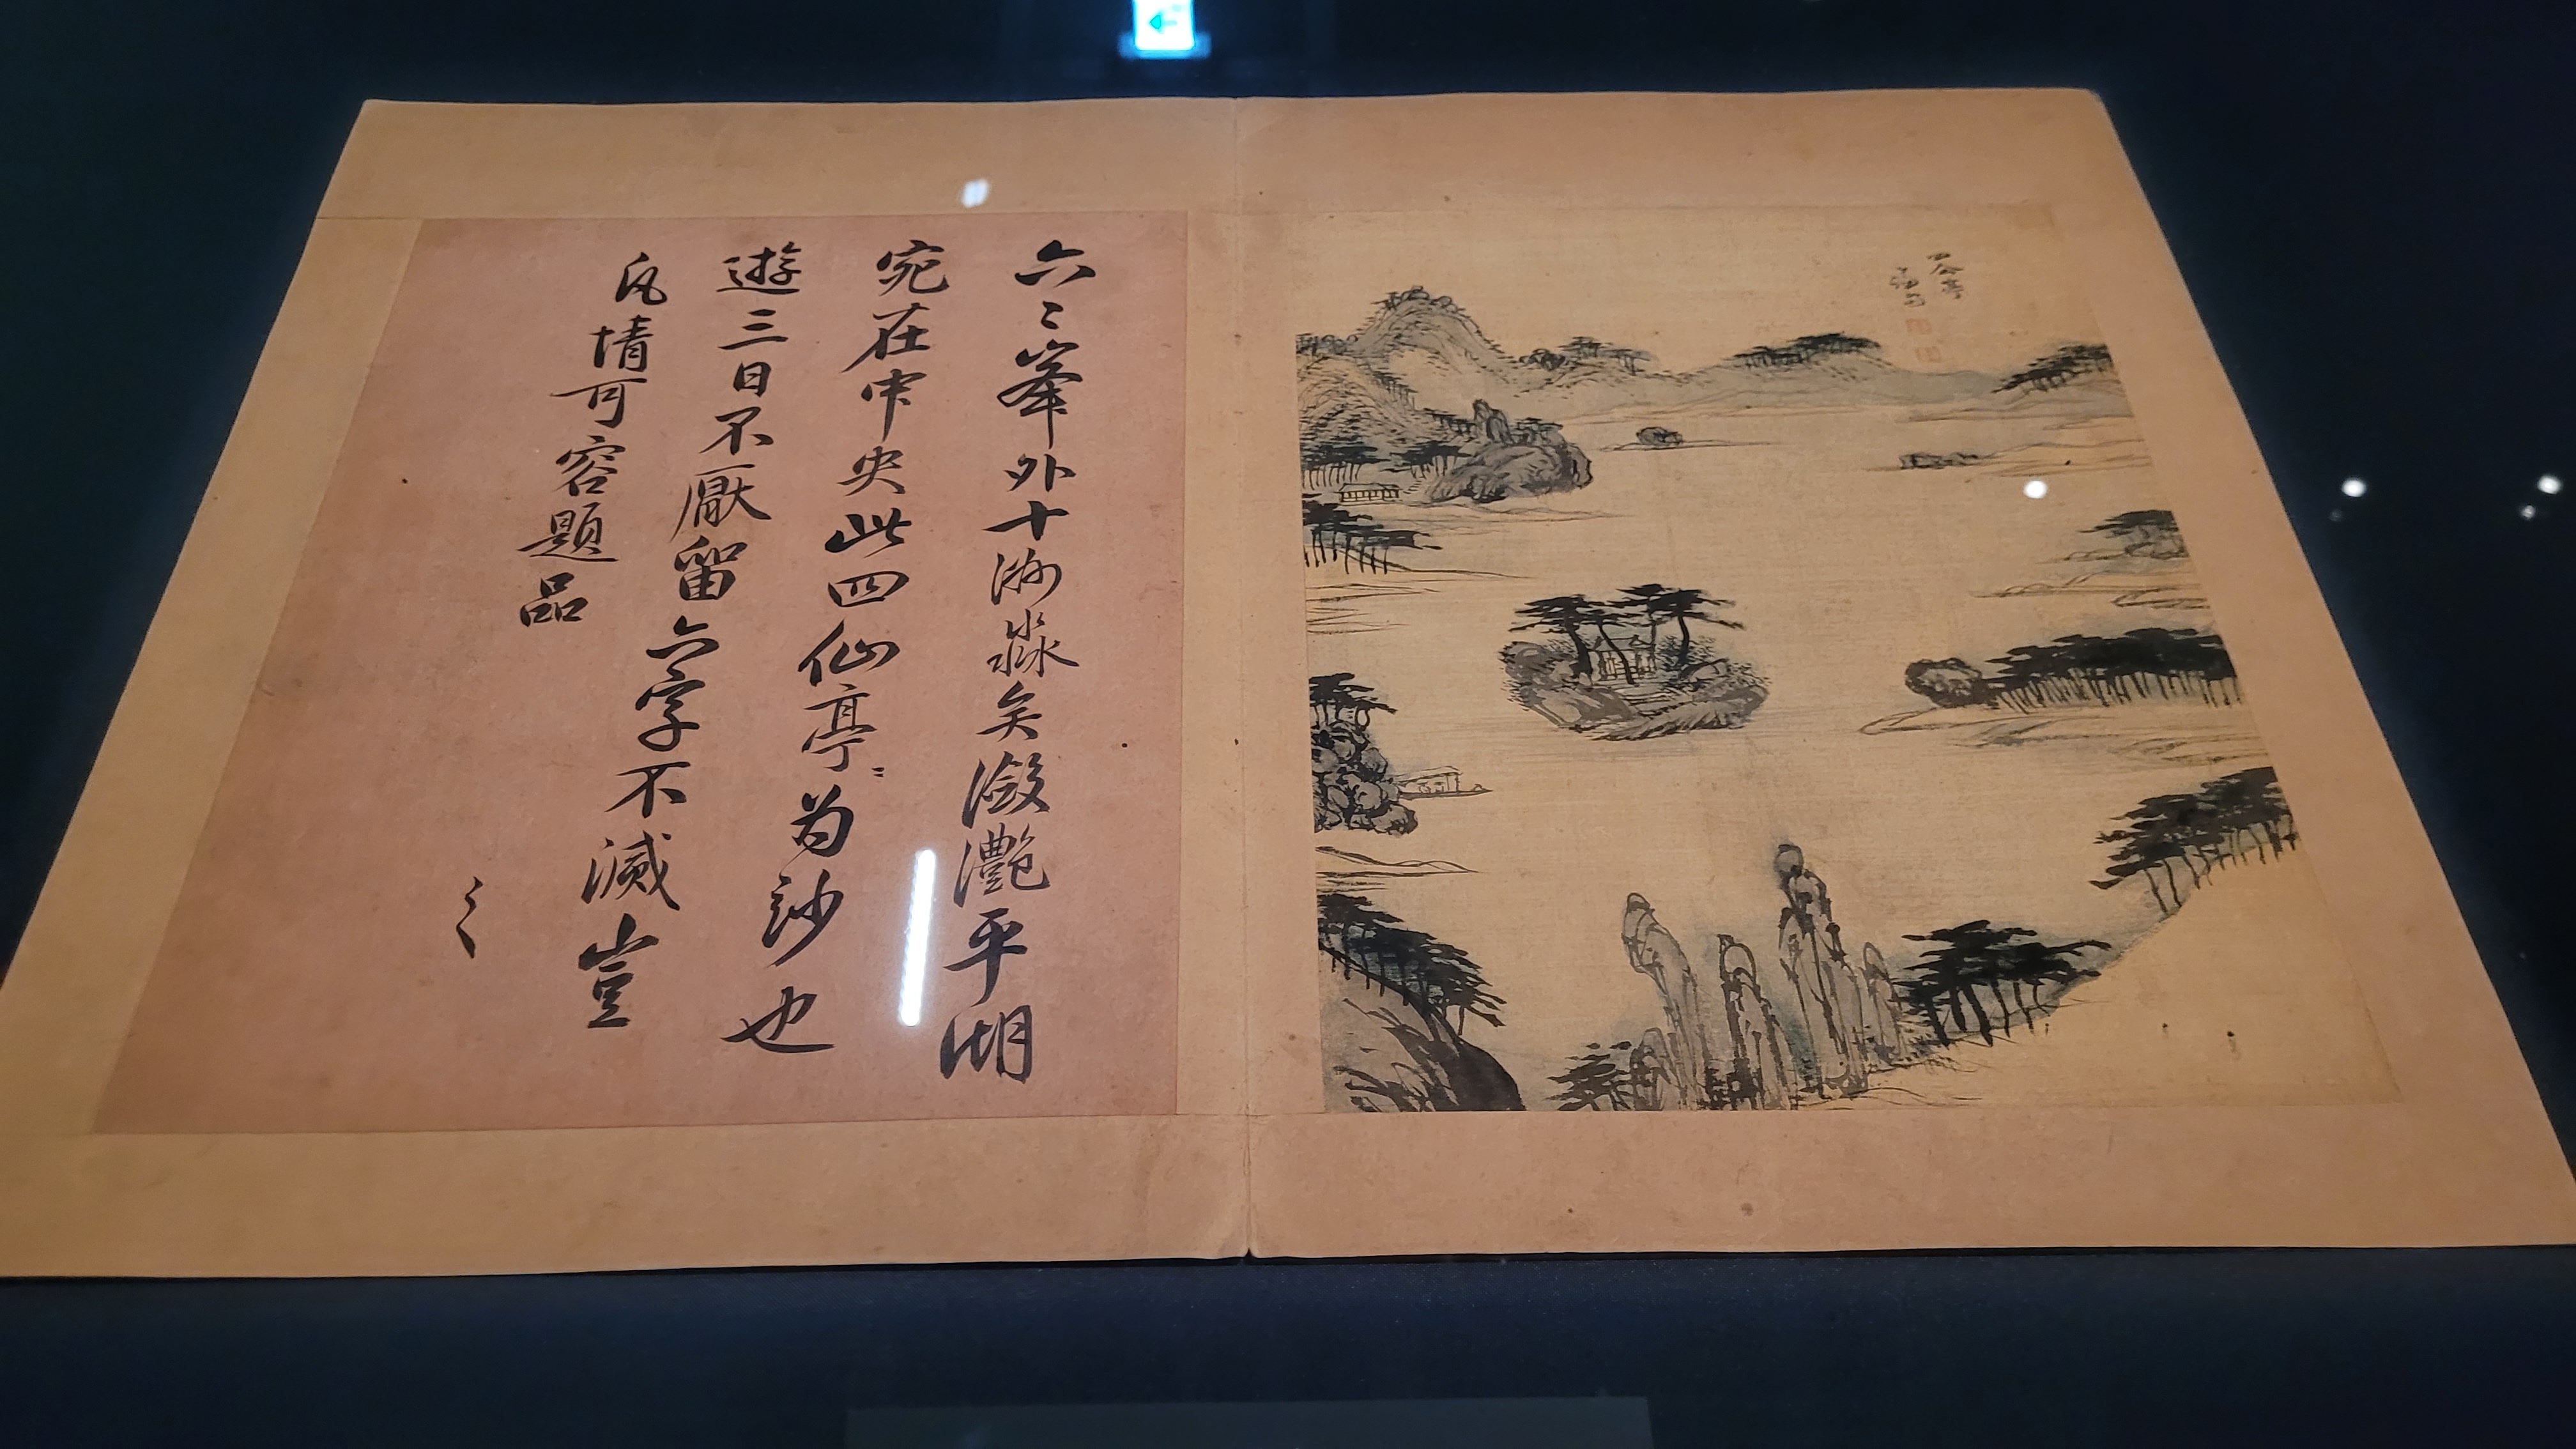 六〻峯外十洲淼矣瀲灩平湖
宛在中央此四仙亭〻为妙也
遊三日不厭留六字不滅豈
风情可容題品